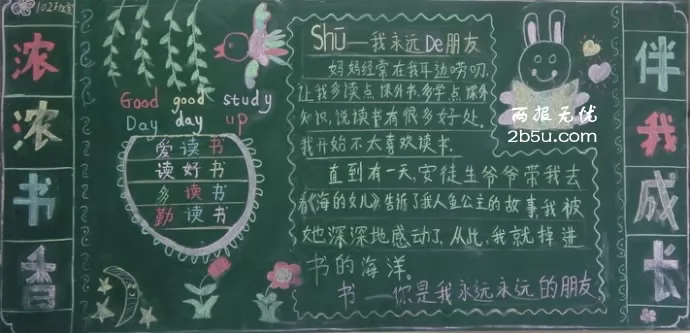 浓浓书香
Good good study
Day day up
爱读书
读好书
多读书
勤读书
Shū——我永远De朋友
妈妈经常在我耳边唠叨,
让我多读点课外书,多学点课外
知识,说读书有很多好处。
我开始不太喜欢读书。
直到有一天,安徒生爷爷带我去
看《海的女儿》告诉了我人鱼公主的故事,我被
她深深地感动了,从此,我就掉进
书的海洋。
书——你是我永远永远的朋友
两报无优
2b5u.com
伴我成长